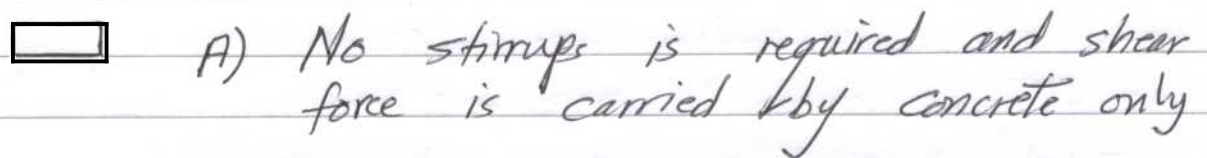 A) No stirrups is required and shear
force is carried by concrete only